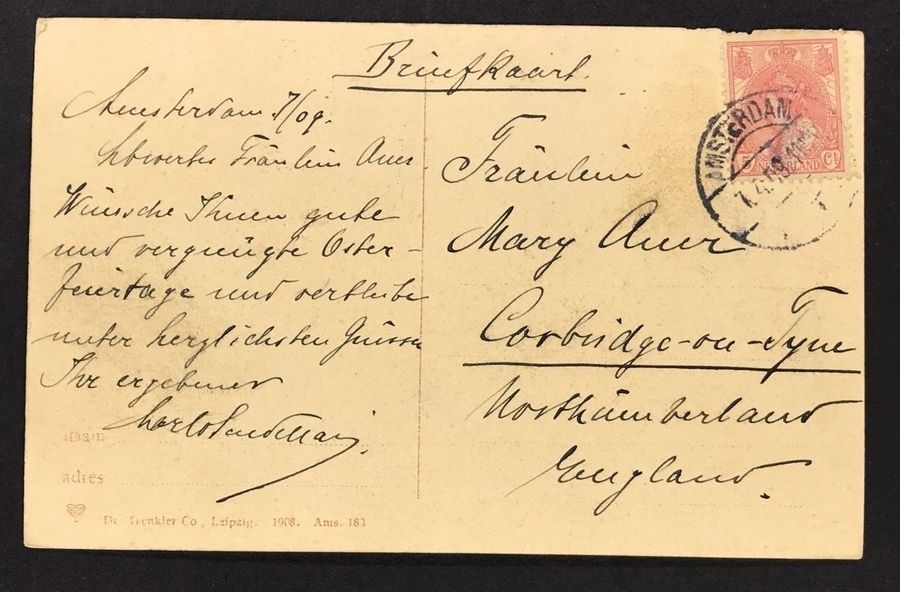 Briefkaart.
Amsterdam 7/09.
Fräulein Auer
Wünsche Ihnen gute
und vergnügte Oster-
feiertage und verbleibe
unter herzlichsten Grüssen
Ihr ergebener
Fräulein
Mary Auer
Corbridge-on-Tyne
Northumberland
England.
AMSTERDAM
7.4.09
NEDERLAND
Ct
adres
Dr. Trenkler Co., Leipzig. 1908. Ams. 183